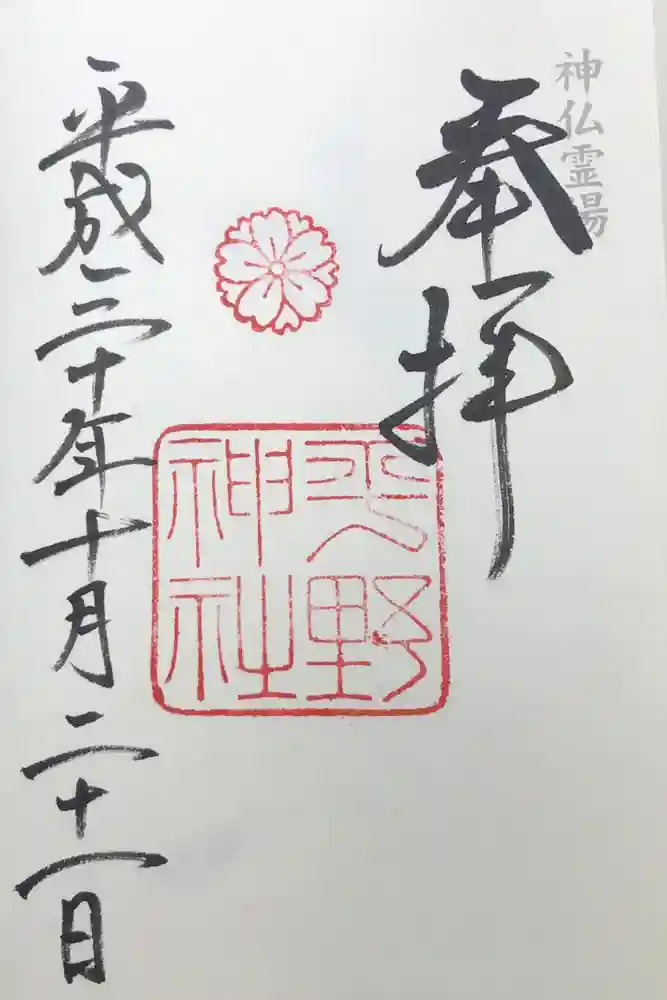 神仏霊場
奉拝
平野
神社
平成三十年十月二十一日